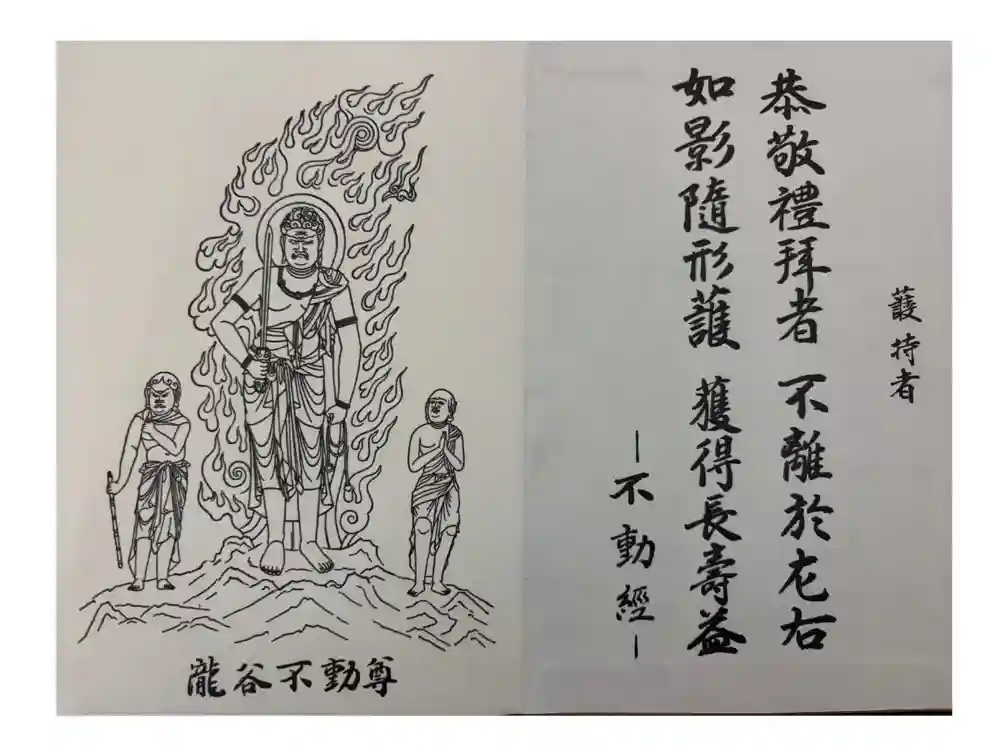 護持者
恭敬禮拜者 不離於左右
如影隨形護 獲得長壽益
—不動經—
瀧谷不動尊